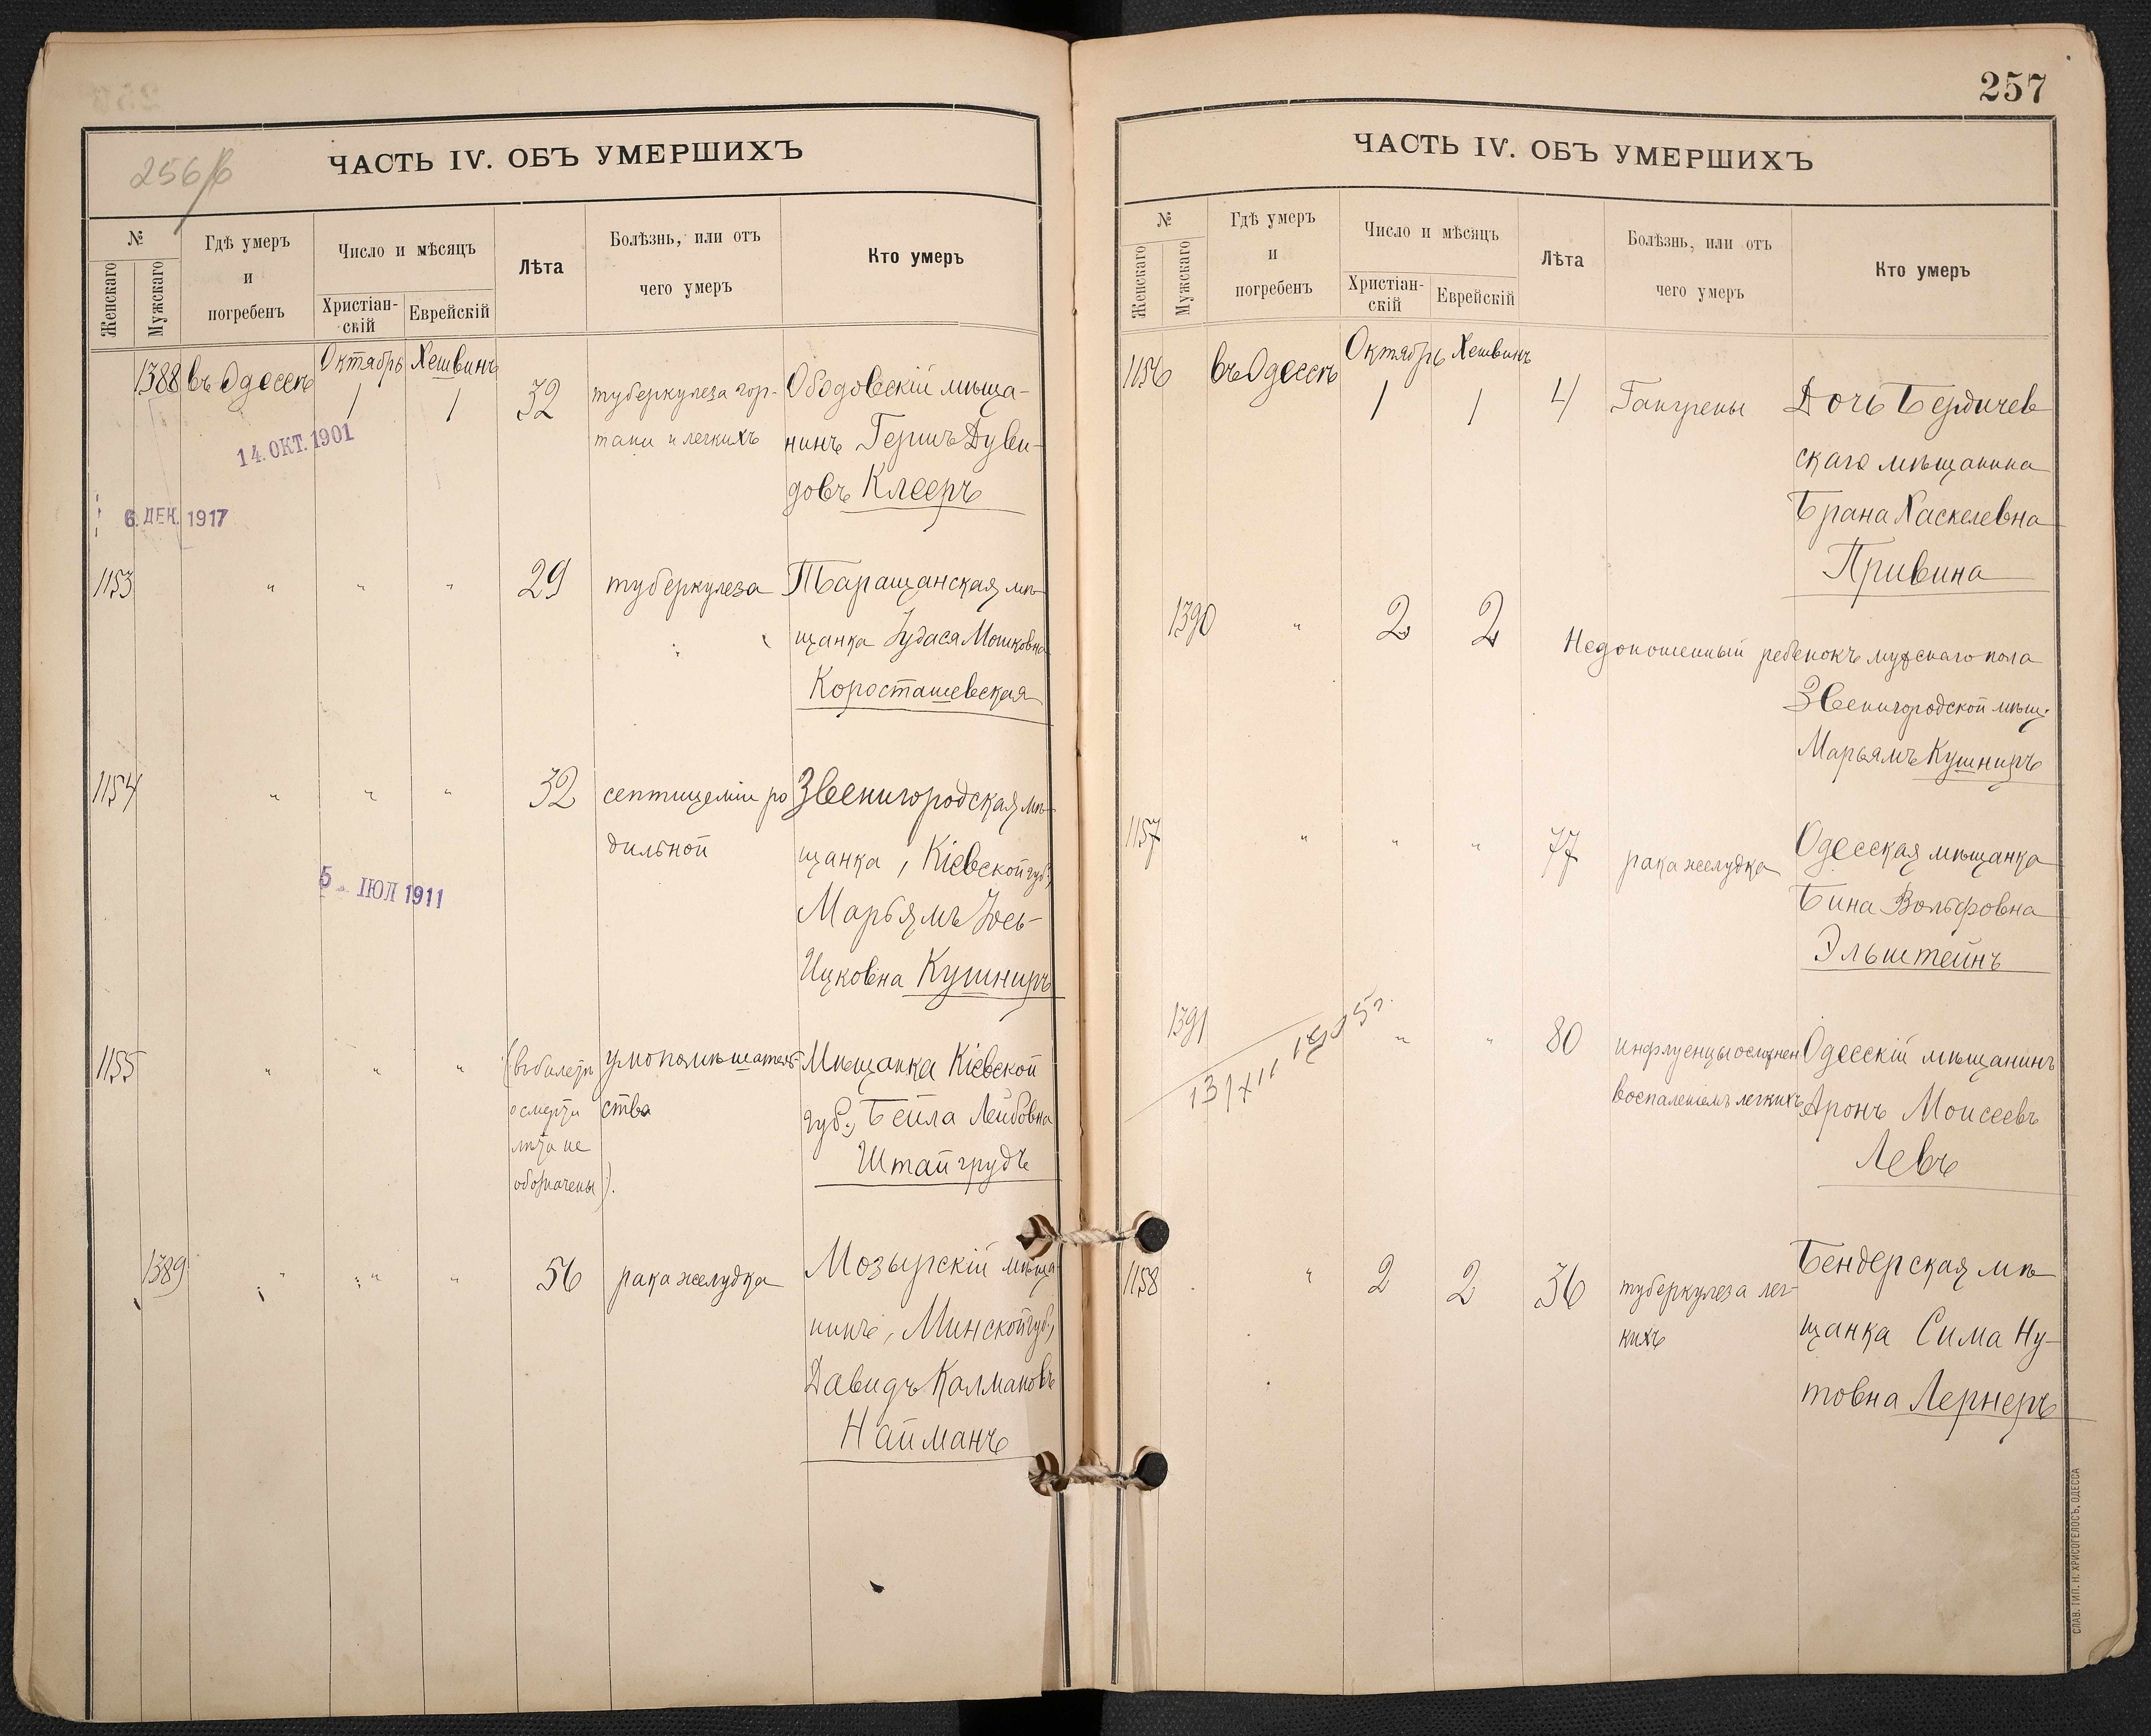 256/б
ЧАСТЬ IV. ОБЪ УМЕРШИХЪ
№
Женскаго
Мужскаго
Гдѣ умеръ
и
погребенъ
Число и мѣсяцъ
Христіан-
скій
Еврейскій
Лѣта
Болѣзнь, или отъ
чего умеръ
Кто умеръ
1388 въ Одессѣ Октябрь Хешвинъ
1 1 32 туберкулеза гор- Ободовскій мѣща-
тани и легкихъ нинъ Гершъ Дуви-
14. ОКТ. 1901
довъ Клееръ
6. ДЕК. 1917
1153 " " " 29 туберкулеза Таращанская мѣ-
щанка Іудася Мошковна
Коросташевская
1154 " " " 32 септицеміи ро Звенигородская мѣ-
дильной щанка, Кіевской губ.,
5 ІЮЛ 1911
Марьямъ Іось-
Ицковна Кушниръ
1155 " " " (въ билетѣ умопомѣшатель- Мѣщанка Кіевской
о смерти ства губ., Бейла Лейбовна
лѣта не Штайгрудъ
обозначены).
1389 " " " 56 рака желудка Мозырскій мѣща-
нинъ, Минской губ.,
Давидъ Калмановъ
Найманъ
257
ЧАСТЬ IV. ОБЪ УМЕРШИХЪ
№
Женскаго
Мужскаго
Гдѣ умеръ
и
погребенъ
Число и мѣсяцъ
Христіан-
скій
Еврейскій
Лѣта
Болѣзнь, или отъ
чего умеръ
Кто умеръ
1156 въ Одессѣ Октябрь Хешвинъ
1 1 4 Гангрены Дочь Бердичев
скаго мѣщанина
Брана Хаскелевна
Привина
1390 " 2 2 Недоношенный ребенокъ мужскаго пола
Звенигородской мѣщ.
Марьямъ Кушниръ
1157 " " " 77 рака желудка Одесская мѣщанка
Бина Вольфовна
Эльштейнъ
1391 " " 80 инфлуенцы осложнен Одесскій мѣщанинъ
воспаленіемъ легкихъ Аронъ Моисеевъ
Левъ
1158 " 2 2 36 туберкулеза лег- Бендерская мѣ-
кихъ щанка Сима Ну-
товна Лернеръ
СЛАВ. ТИП. Н. ХРИСОГЕЛОСЪ, ОДЕССА